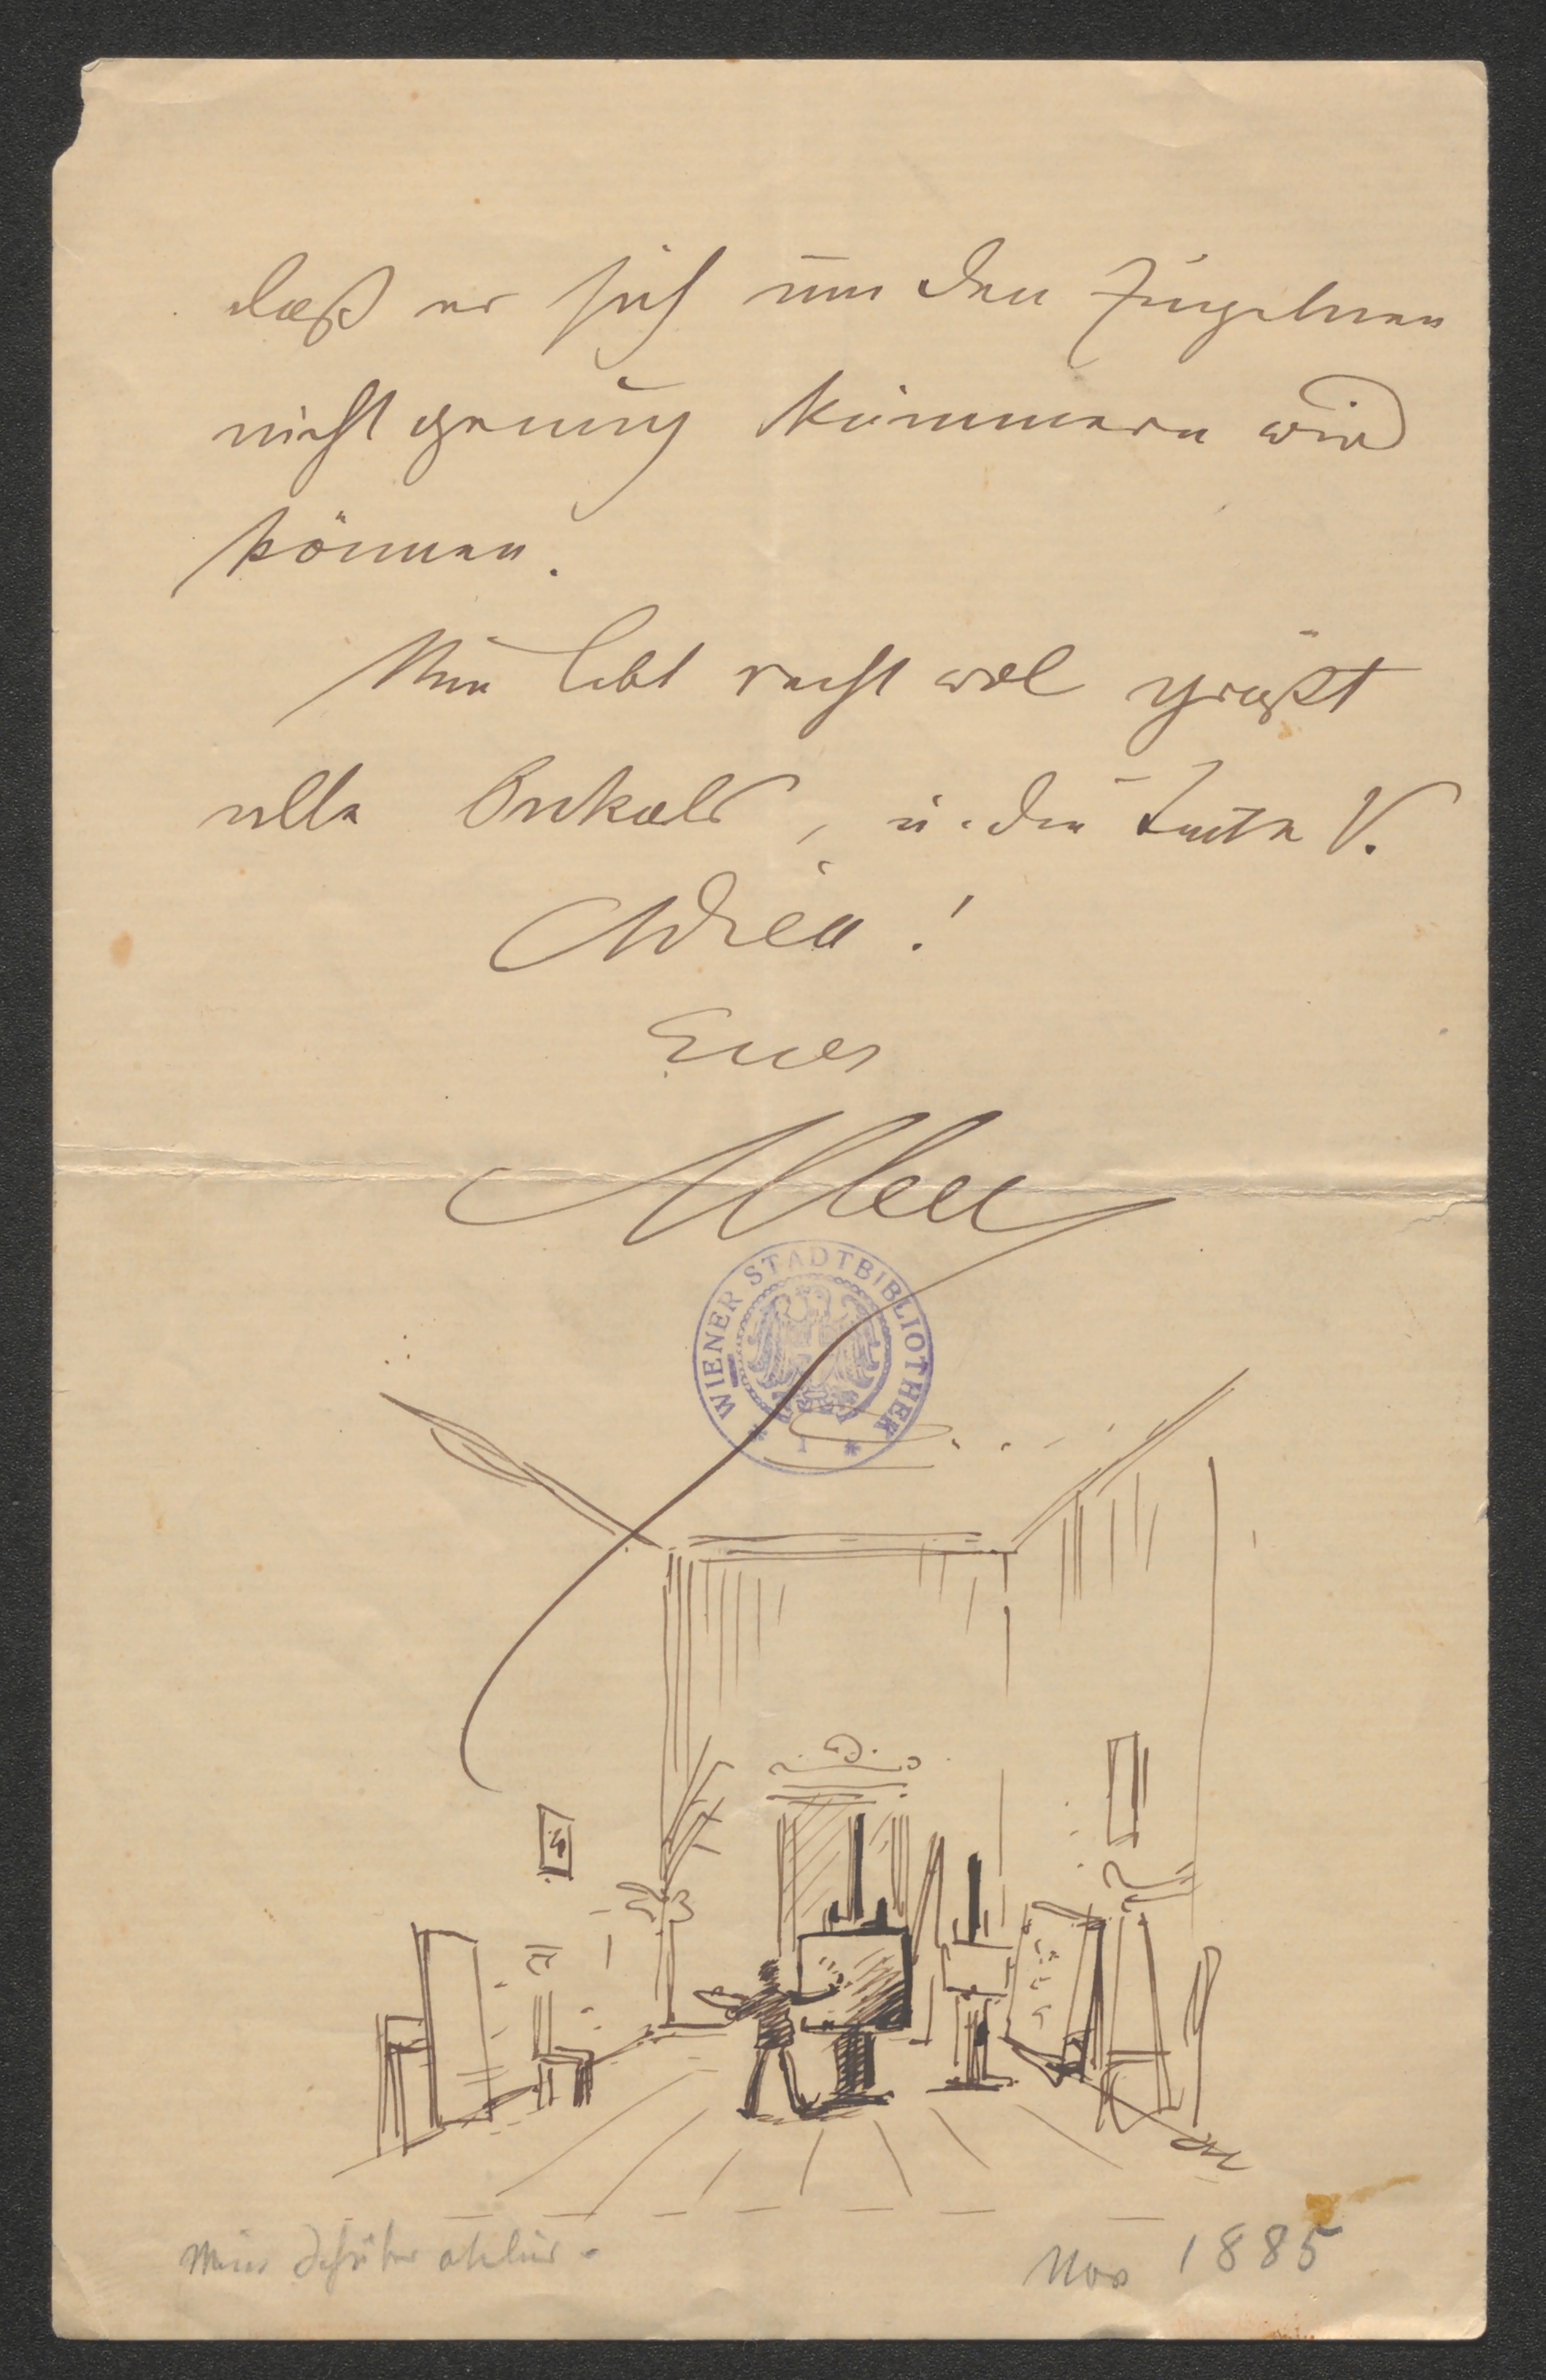 daß er sich um den
nicht genug kümmern wird
können.
Nun lebt recht wol grüßt
alle Onkels, u. die Tante V.
Adieu!
Euer
WIENER STADTBIBLIOTHEK
* 1 *
Mein atelier.
Nov 1885